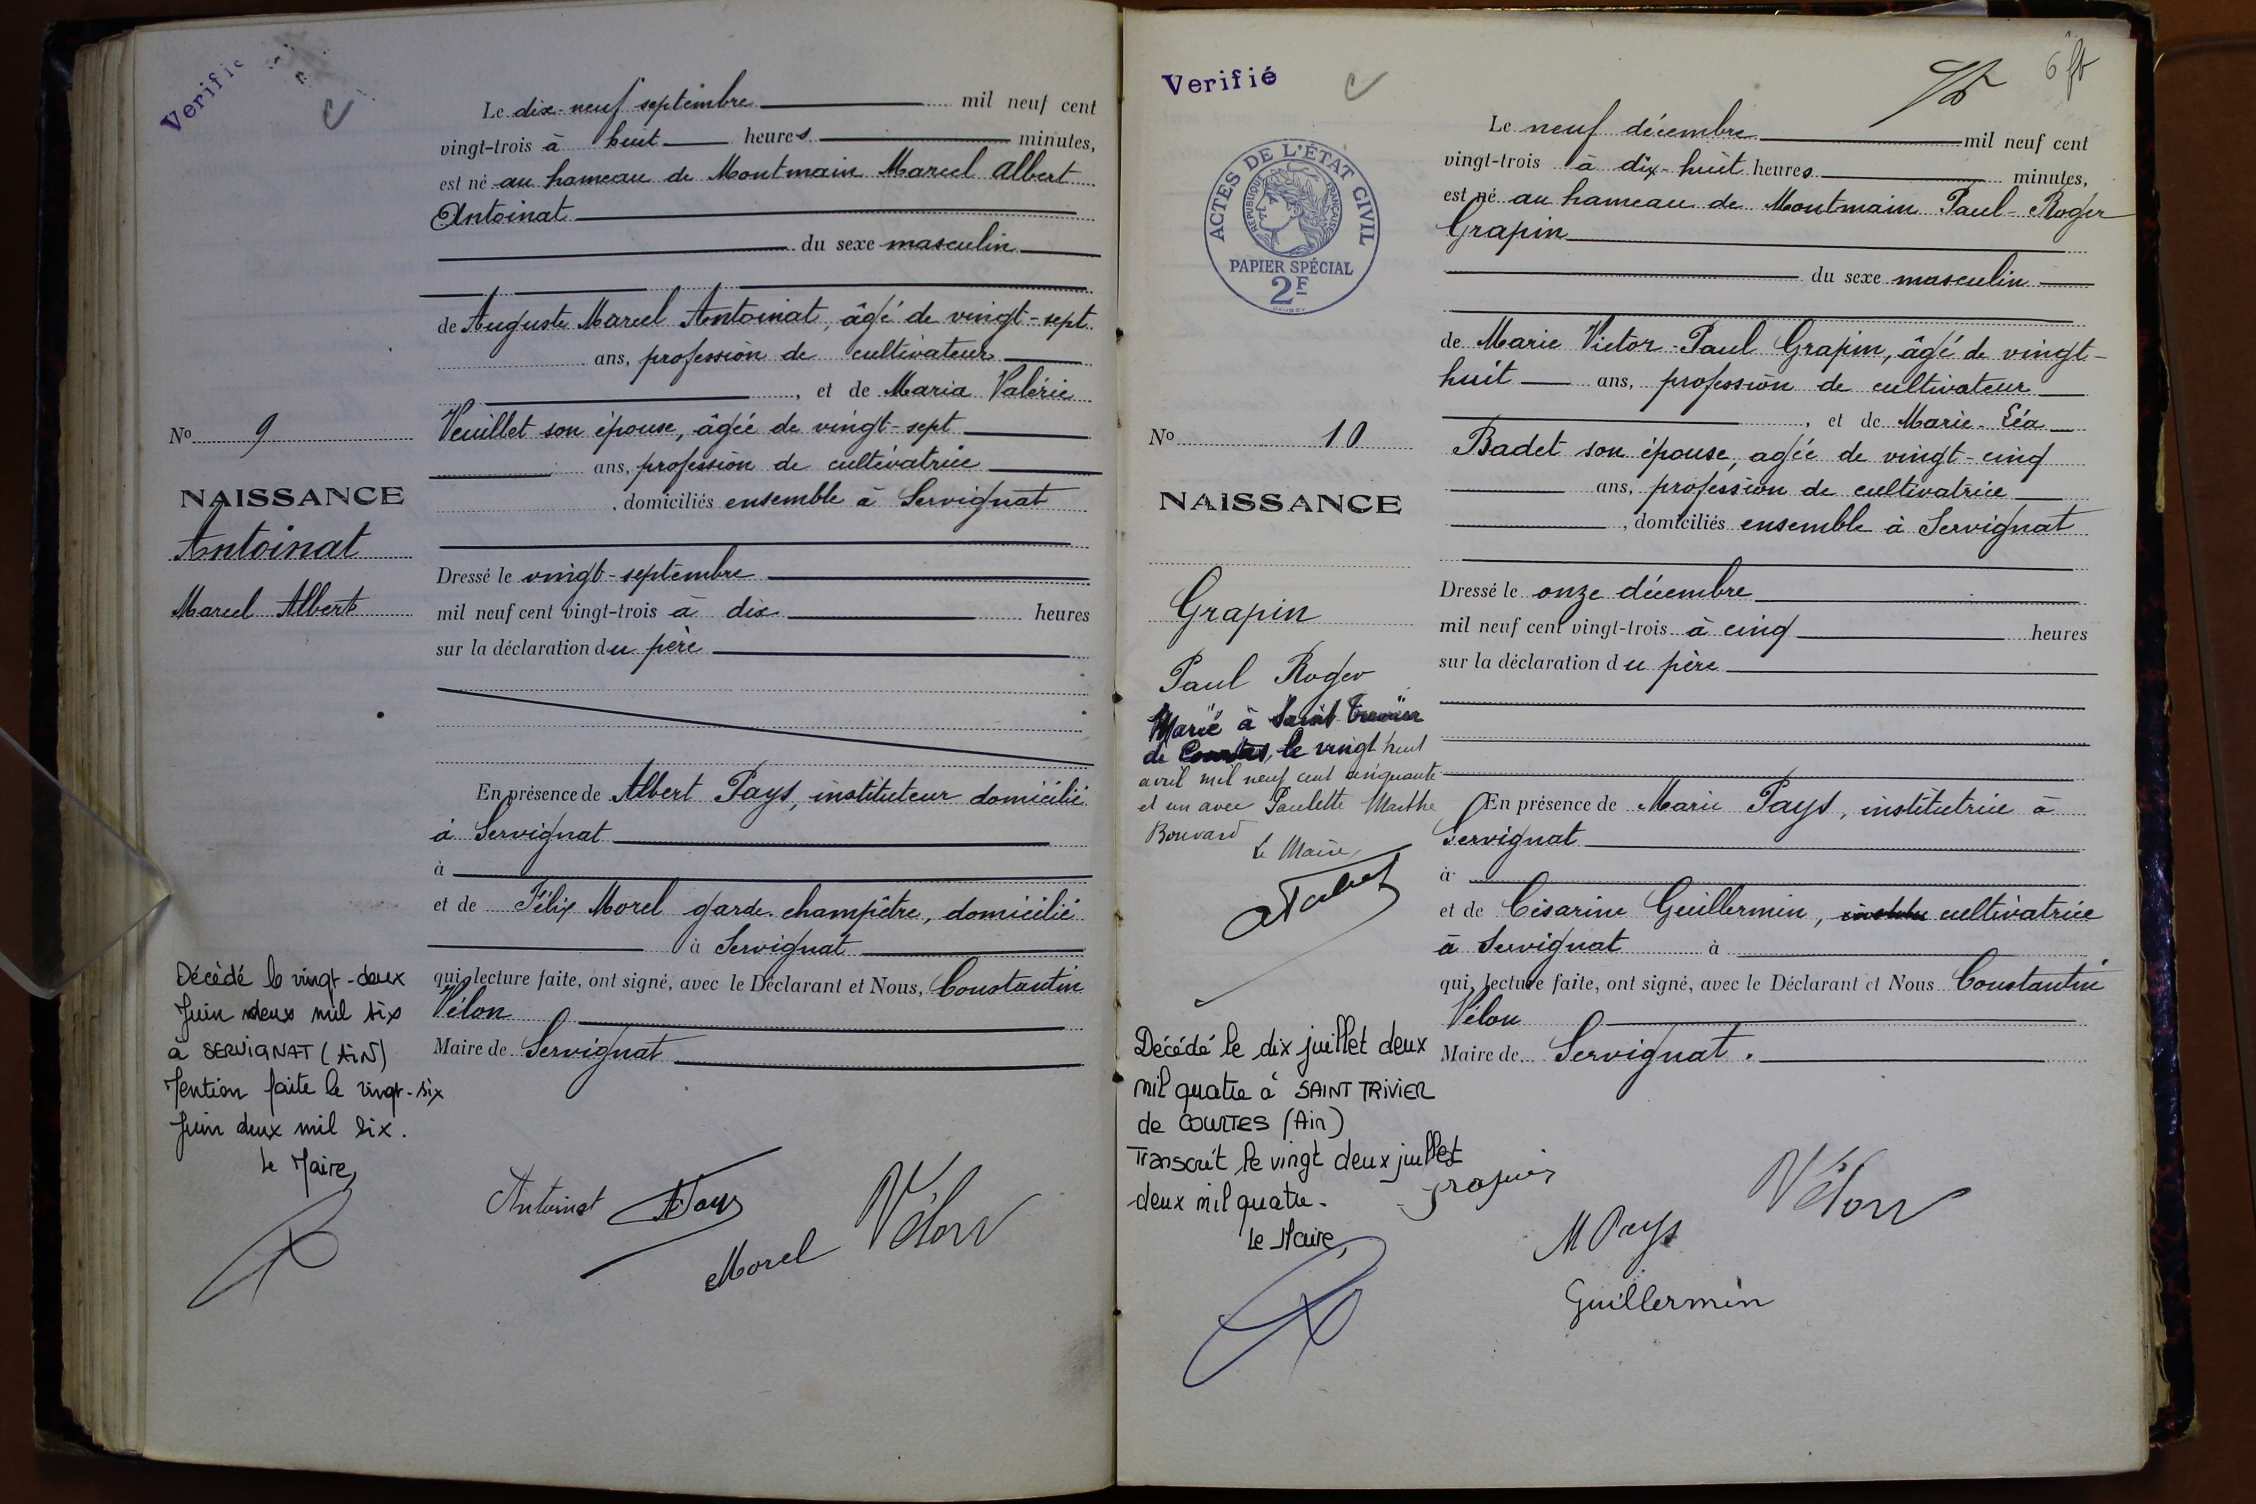 Verifié
Le dix-neuf septembre mil neuf cent
vingt-trois à huit heures minutes,
est né au hameau de Montmain Marcel Albert
Antoinat
du sexe masculin
de Auguste Marcel Antoinat, âgé de vingt-sept
ans, profession de cultivateur
, et de Maria Valérie
Veuillet son épouse, âgée de vingt-sept
ans, profession de cultivatrice
, domiciliés ensemble à Servignat
Dressé le vingt-septembre
mil neuf cent vingt-trois à dix heures
sur la déclaration du père
En présence de Albert Pays, instituteur domicilié
à Servignat
à
et de Félix Morel garde-champêtre, domicilié
à Servignat
qui, lecture faite, ont signé, avec le Déclarant et Nous, Constantin
Vélon
Maire de Servignat
No 9
NAISSANCE
Antoinat
Marcel Albert
Décédé le vingt-deux
Juin deux mil six
à SERVIGNAT (AIN)
Mention faite le vingt-six
Juin deux mil six.
Le Maire,
Antoinat
A Pays
Morel
Vélon
Verifié
6
ACTES DE L'ÉTAT CIVIL
RÉPUBLIQUE FRANÇAISE
PAPIER SPÉCIAL
2F
Le neuf décembre mil neuf cent
vingt-trois à dix-huit heures minutes,
est né au hameau de Montmain Paul-Roger
Grapin
du sexe masculin
de Marie Victor-Paul Grapin, âgé de vingt-
huit ans, profession de cultivateur
, et de Marie-Léa
Badet son épouse, agée de vingt-cinq
ans, profession de cultivatrice
, domiciliés ensemble à Servignat
Dressé le onze décembre
mil neuf cent vingt-trois à cinq heures
sur la déclaration du père
En présence de Marie Pays, institutrice à
Servignat
à
et de Césarine Guillermin, institu cultivatrice
à Servignat à
qui, lecture faite, ont signé, avec le Déclarant et Nous Constantin
Vélon
Maire de Servignat.
No 10
NAISSANCE
Grapin
Paul Roger
Marié à Saint Trivier
de Courtes, le vingt huit
avril mil neuf cent cinquante
et un avec Paulette Marthe
Bouvard
Le Maire,
Décédé le dix juillet deux
mil quatre à SAINT TRIVIER
de COURTES (Ain)
Transcrit le vingt deux juillet
deux mil quatre.
Le Maire,
Grapin
M Pays
Vélon
Guillermin